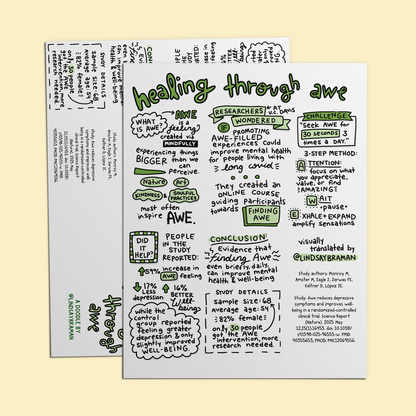 healing through awe
WHAT
IS AWE?
AWE
is a
feeling
created
via
MINDFULLY
experiencing things
BIGGER than we
can
perceive.
Nature
Art
KINDNESS
SOULFUL
PRACTICES
most often
inspire AWE.
DID
IT
HELP?
PEOPLE
IN THE
STUDY
REPORTED:
↑59% increase in
AWE feeling
↓17%
Less
depression
↑16%
BETTER
Well-
Being.
While the
control
group reported
feeling greater
depression & only
slightly improved
WELL-BEING.
RESEARCHERS AT
U.C. DAVIS
WONDERED
IF
PROMOTING
AWE-FILLED
experiences could
improve mental health
for people living with
long covid
They created
an ONLINE COURSE
guiding participants
towards
FINDING
AWE
CONCLUSION:
Evidence that
finding AWE
even briefly, daily
can improve mental
health & well-being
STUDY DETAILS
sample size: 68
average age: 54
82% female
only 30 people
got the AWE
intervention, more
research needed.
CHALLENGE:
"Seek AWE for
30 seconds, 3
times a day."
3-STEP METHOD:
ATTENTION:
focus on what
you appreciate,
value, or find
AMAZING!
WAIT
-pause-
EXHALE+EXPAND
amplify sensations
visually
translated by
@LINDSAYBRAMAN
Study authors: Monroy M,
Amster M, Eagle J, Zerwas FK,
Keltner D, López JE.
Study: Awe reduces depressive
symptoms and improves well-
being in a randomized-controlled
clinical trial. Science Report
(Nature). 2025 May
STUDY DETAILS
sample size: 68
average age: 54
82% female
only 30 people
got the AWE
intervention, more
research needed.
CONCLUSION:
A DOODLE BY
@LINDSAYBRAMAN
healing
through
awe